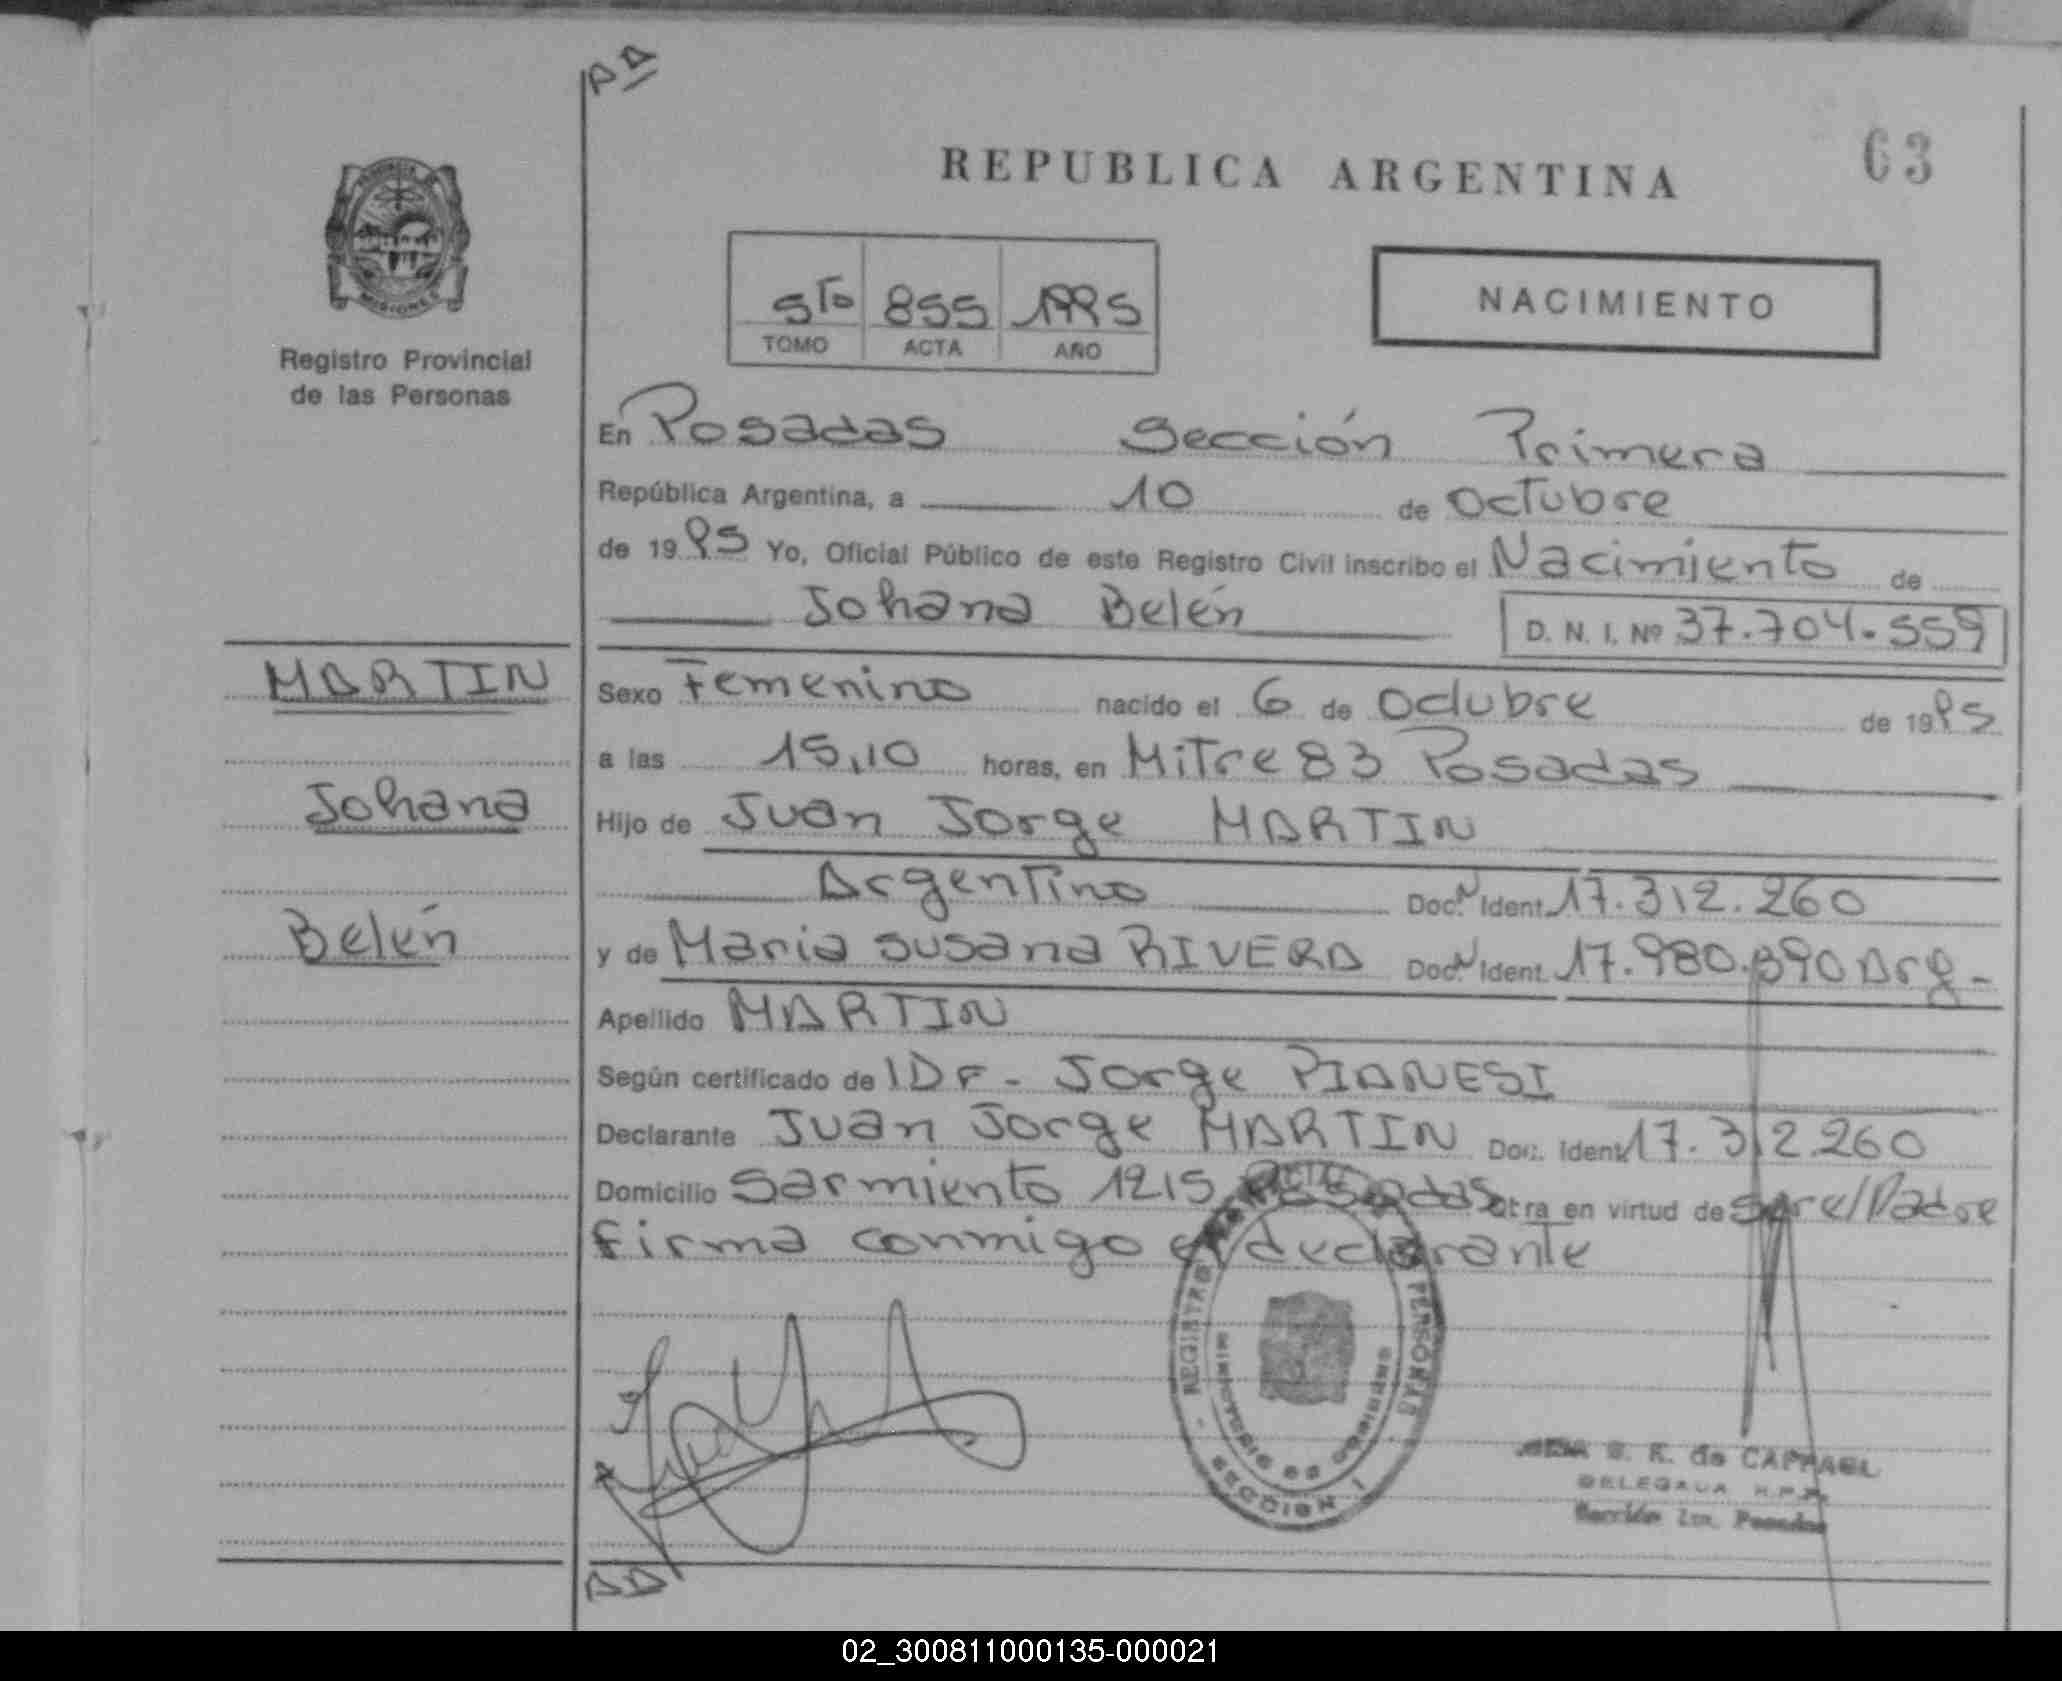 AA
REPUBLICA ARGENTINA
63
PROVINCIA DE
MISIONES
Registro Provincial
de las Personas
5to 855 1995
TOMO ACTA AÑO
NACIMIENTO
En Posadas Sección Primera
República Argentina, a 10 de Octubre
de 1995 Yo, Oficial Público de este Registro Civil inscribo el Nacimiento de
Johana Belén
D. N. I. Nº 37.704.559
MARTIN
Johana
Belén
Sexo Femenino nacido el 6 de Octubre de 1995
a las 15,10 horas, en Mitre 83 Posadas
Hijo de Juan Jorge MARTIN
Argentino Doc. N Ident. 17.312.260
y de Maria Susana RIVERA Doc. N Ident. 17.980.390 Arg-
Apellido MARTIN
Según certificado de IDF - Jorge PIANESI
Declarante Juan Jorge MARTIN Doc. Ident. 17.312.260
Domicilio Sarmiento 1215 Posadas Obra en virtud de ser el Padre
Firma conmigo el declarante
REGISTRO PERSONAS
MINISTERIO DE GOBIERNO
SECCION 1
S. R. de CAPPAEL
DELEGADA R.P.P.
Sección 1ra. Posadas
AA
02_300811000135-000021